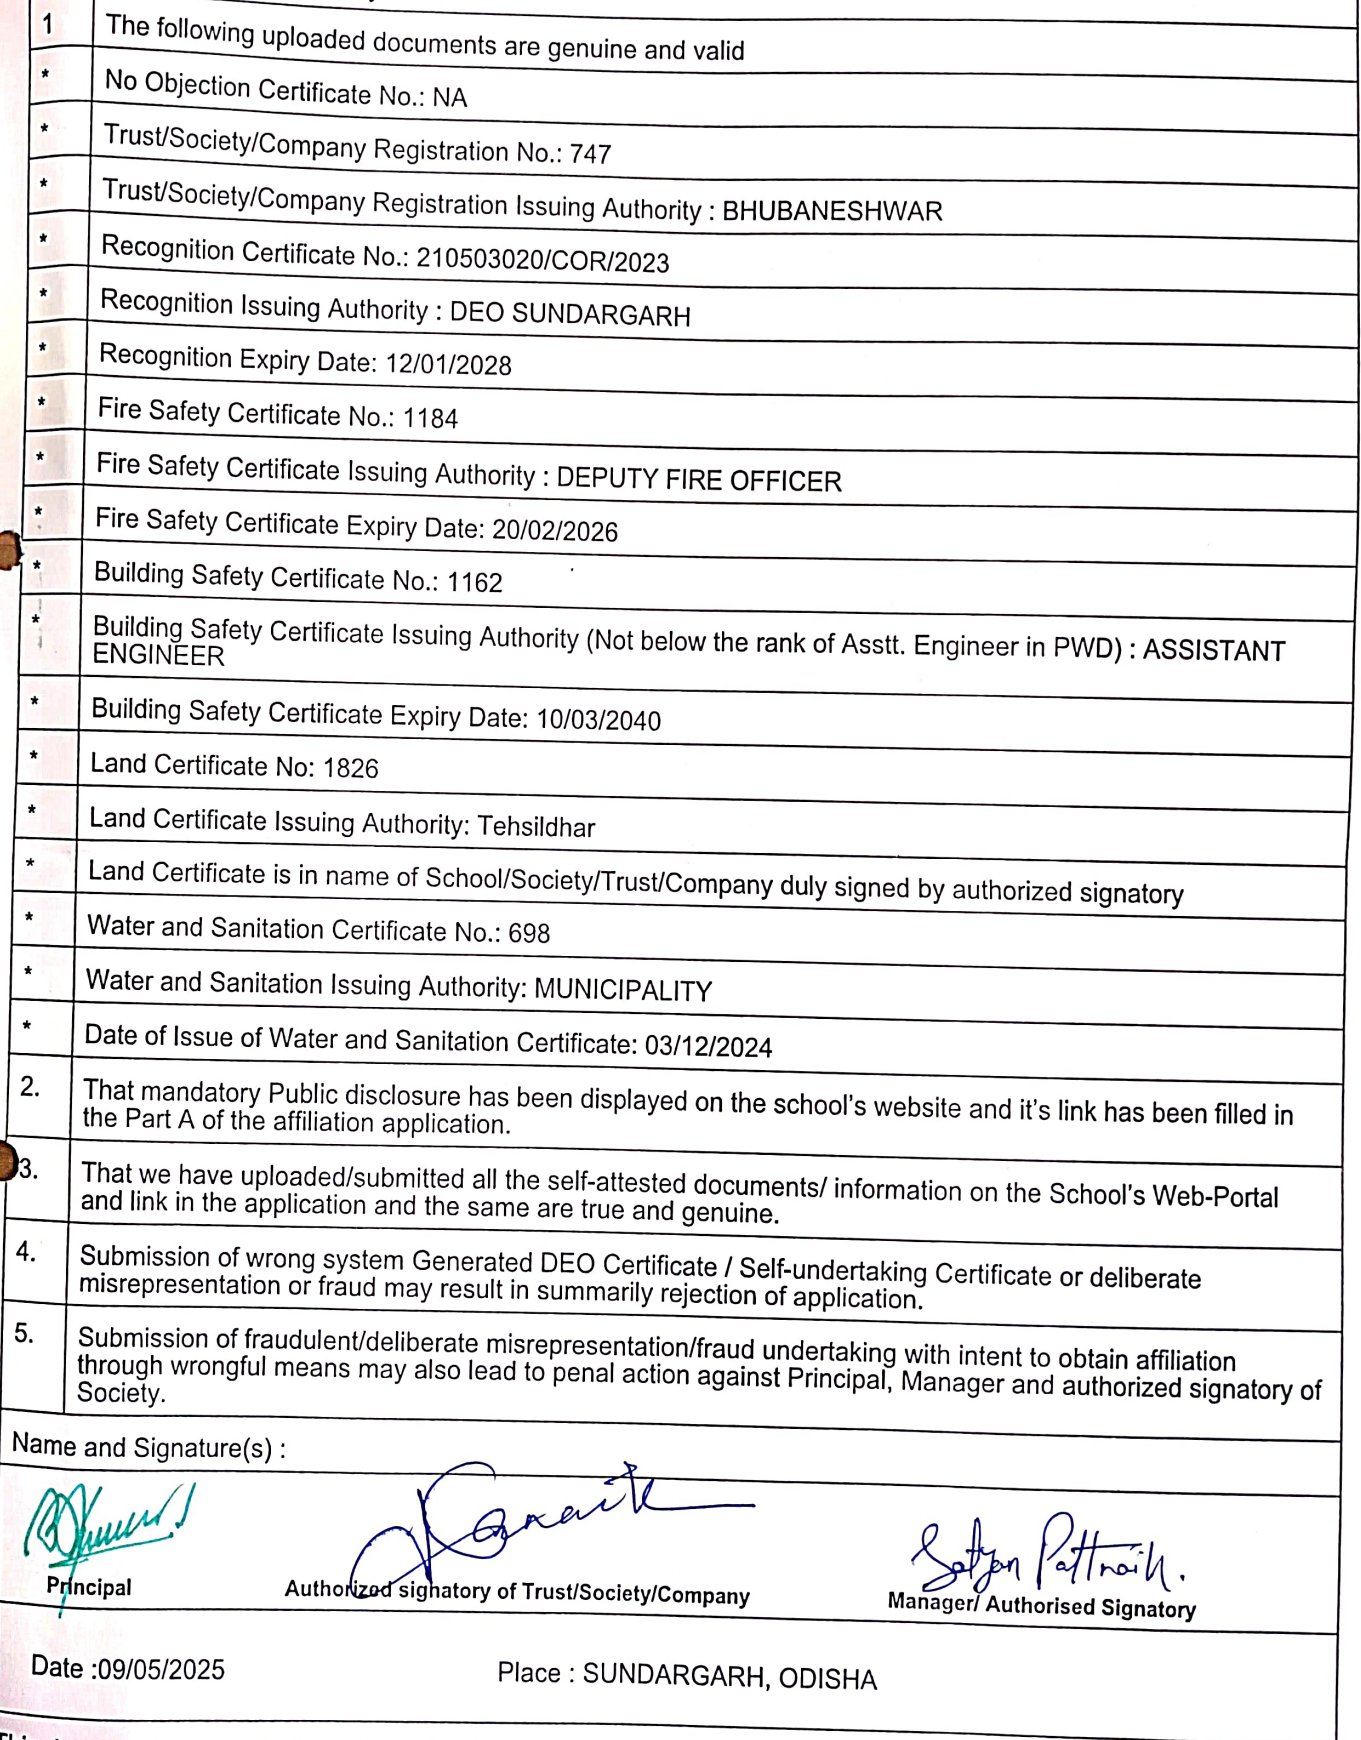 1 The following uploaded documents are genuine and valid
* No Objection Certificate No.: NA
* Trust/Society/Company Registration No.: 747
* Trust/Society/Company Registration Issuing Authority : BHUBANESHWAR
* Recognition Certificate No.: 210503020/COR/2023
* Recognition Issuing Authority : DEO SUNDARGARH
* Recognition Expiry Date: 12/01/2028
* Fire Safety Certificate No.: 1184
* Fire Safety Certificate Issuing Authority : DEPUTY FIRE OFFICER
* Fire Safety Certificate Expiry Date: 20/02/2026
* Building Safety Certificate No.: 1162
* Building Safety Certificate Issuing Authority (Not below the rank of Asstt. Engineer in PWD) : ASSISTANT
ENGINEER
* Building Safety Certificate Expiry Date: 10/03/2040
* Land Certificate No: 1826
* Land Certificate Issuing Authority: Tehsildhar
* Land Certificate is in name of School/Society/Trust/Company duly signed by authorized signatory
* Water and Sanitation Certificate No.: 698
* Water and Sanitation Issuing Authority: MUNICIPALITY
* Date of Issue of Water and Sanitation Certificate: 03/12/2024
2. That mandatory Public disclosure has been displayed on the school's website and it's link has been filled in
the Part A of the affiliation application.
3. That we have uploaded/submitted all the self-attested documents/ information on the School's Web-Portal
and link in the application and the same are true and genuine.
4. Submission of wrong system Generated DEO Certificate / Self-undertaking Certificate or deliberate
misrepresentation or fraud may result in summarily rejection of application.
5. Submission of fraudulent/deliberate misrepresentation/fraud undertaking with intent to obtain affiliation
through wrongful means may also lead to penal action against Principal, Manager and authorized signatory of
Society.
Name and Signature(s) :
Satyan Pattnaik.
Principal Authorized signatory of Trust/Society/Company Manager/ Authorised Signatory
Date :09/05/2025 Place : SUNDARGARH, ODISHA